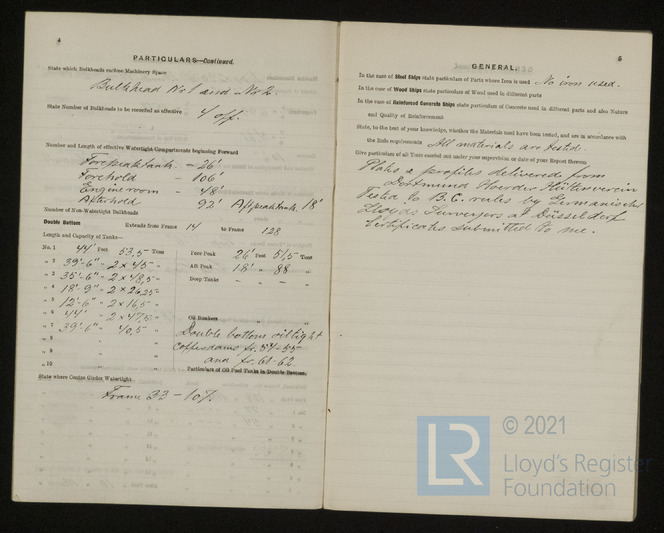 4
PARTICULARS—Continued.
State which Bulkheads enclose Machinery Space
Bulkhead No 1 and No 2.
State Number of Bulkheads to be recorded as effective
4 off.
Number and Length of effective Watertight Compartments beginning Forward
Forepeaktank. - 26'
Forehold - 106'
Engineroom - 48'
Afterhold 92' Aftpeaktank. 18'
Number of Non-Watertight Bulkheads
Double Bottom Extends from Frame 14 to Frame 128
Length and Capacity of Tanks—
No. 1 44' Feet 53,5 Tons Fore Peak 26' Feet 51,5 Tons
" 2 39'-6" " 2 x 45 " Aft Peak 18' " 88 "
" 3 35'-6" " 2 x 48,5 " Deep Tanks — " — " —
" 4 18'-9" " 2 x 26,25 "
" 5 12'-6" " 2 x 16,5 "
" 6 44' " 2 x 47,5 " Oil Bunkers " "
" 7 39'-6" " 40,5 " Double bottom oiltight
" 8 " " Cofferdams fr. 54-55
" 9 " " and fr. 61-62.
" 10 " " Particulars of Oil Fuel Tanks in Double Bottom.
State where Centre Girder Watertight
Frame 33 - 107.
5
GENERAL.
In the case of Steel Ships state particulars of Parts where Iron is used No iron used.
In the case of Wood Ships state particulars of Wood used in different parts
In the case of Reinforced Concrete Ships state particulars of Concrete used in different parts and also Nature
and Quality of Reinforcement
State, to the best of your knowledge, whether the Materials used have been tested, and are in accordance with
the Rule requirements All materials are tested.
Give particulars of all Tests carried out under your supervision or date of your Report thereon
Plates & profiles delivered from
Dortmund Hoerder Hüttenverein
Tested to B.C. rules by Germanischer
Lloyds Surveyors at Düsseldorf
Certificates submitted to me.
LR © 2021
Lloyd's Register
Foundation